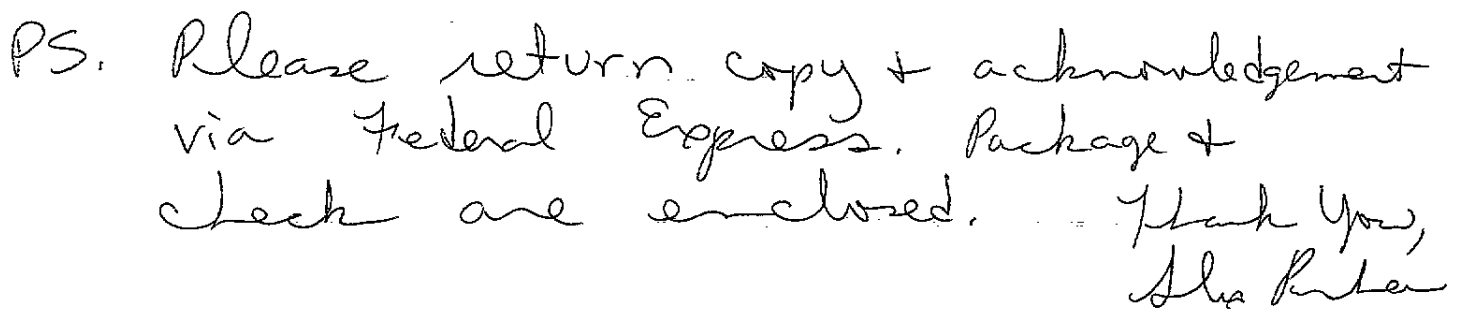 PS. Please return copy + acknowledgement
via Federal Express. Package +
check are enclosed. Thank You,